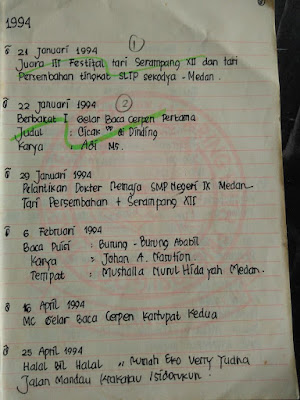 1994
① 
21 Januari 1994
Juara III Festival tari Serampang XII dan tari
Persembahan tingkat SLTP sekodya - Medan.
②
22 Januari 1994
Berbakat I Gelar Baca Cerpen Pertama
Judul : Cicak di Dinding
Karya : Adi MS.
29 Januari 1994
Pelantikan Dokter Remaja SMP Negeri IX Medan
Tari Persembahan + Serampang XII
6 Februari 1994
Baca Puisi : Burung-Burung Ababil
Karya : Johan A. Nasution
Tempat : Musholla Nurul Hidayah Medan.
April 1994
MC Gelar Baca Cerpen Kartupat Kedua
25 April 1994
Halal Bil Halal Rumah Eko Verry Yudha
Jalan Mandau Krakatau